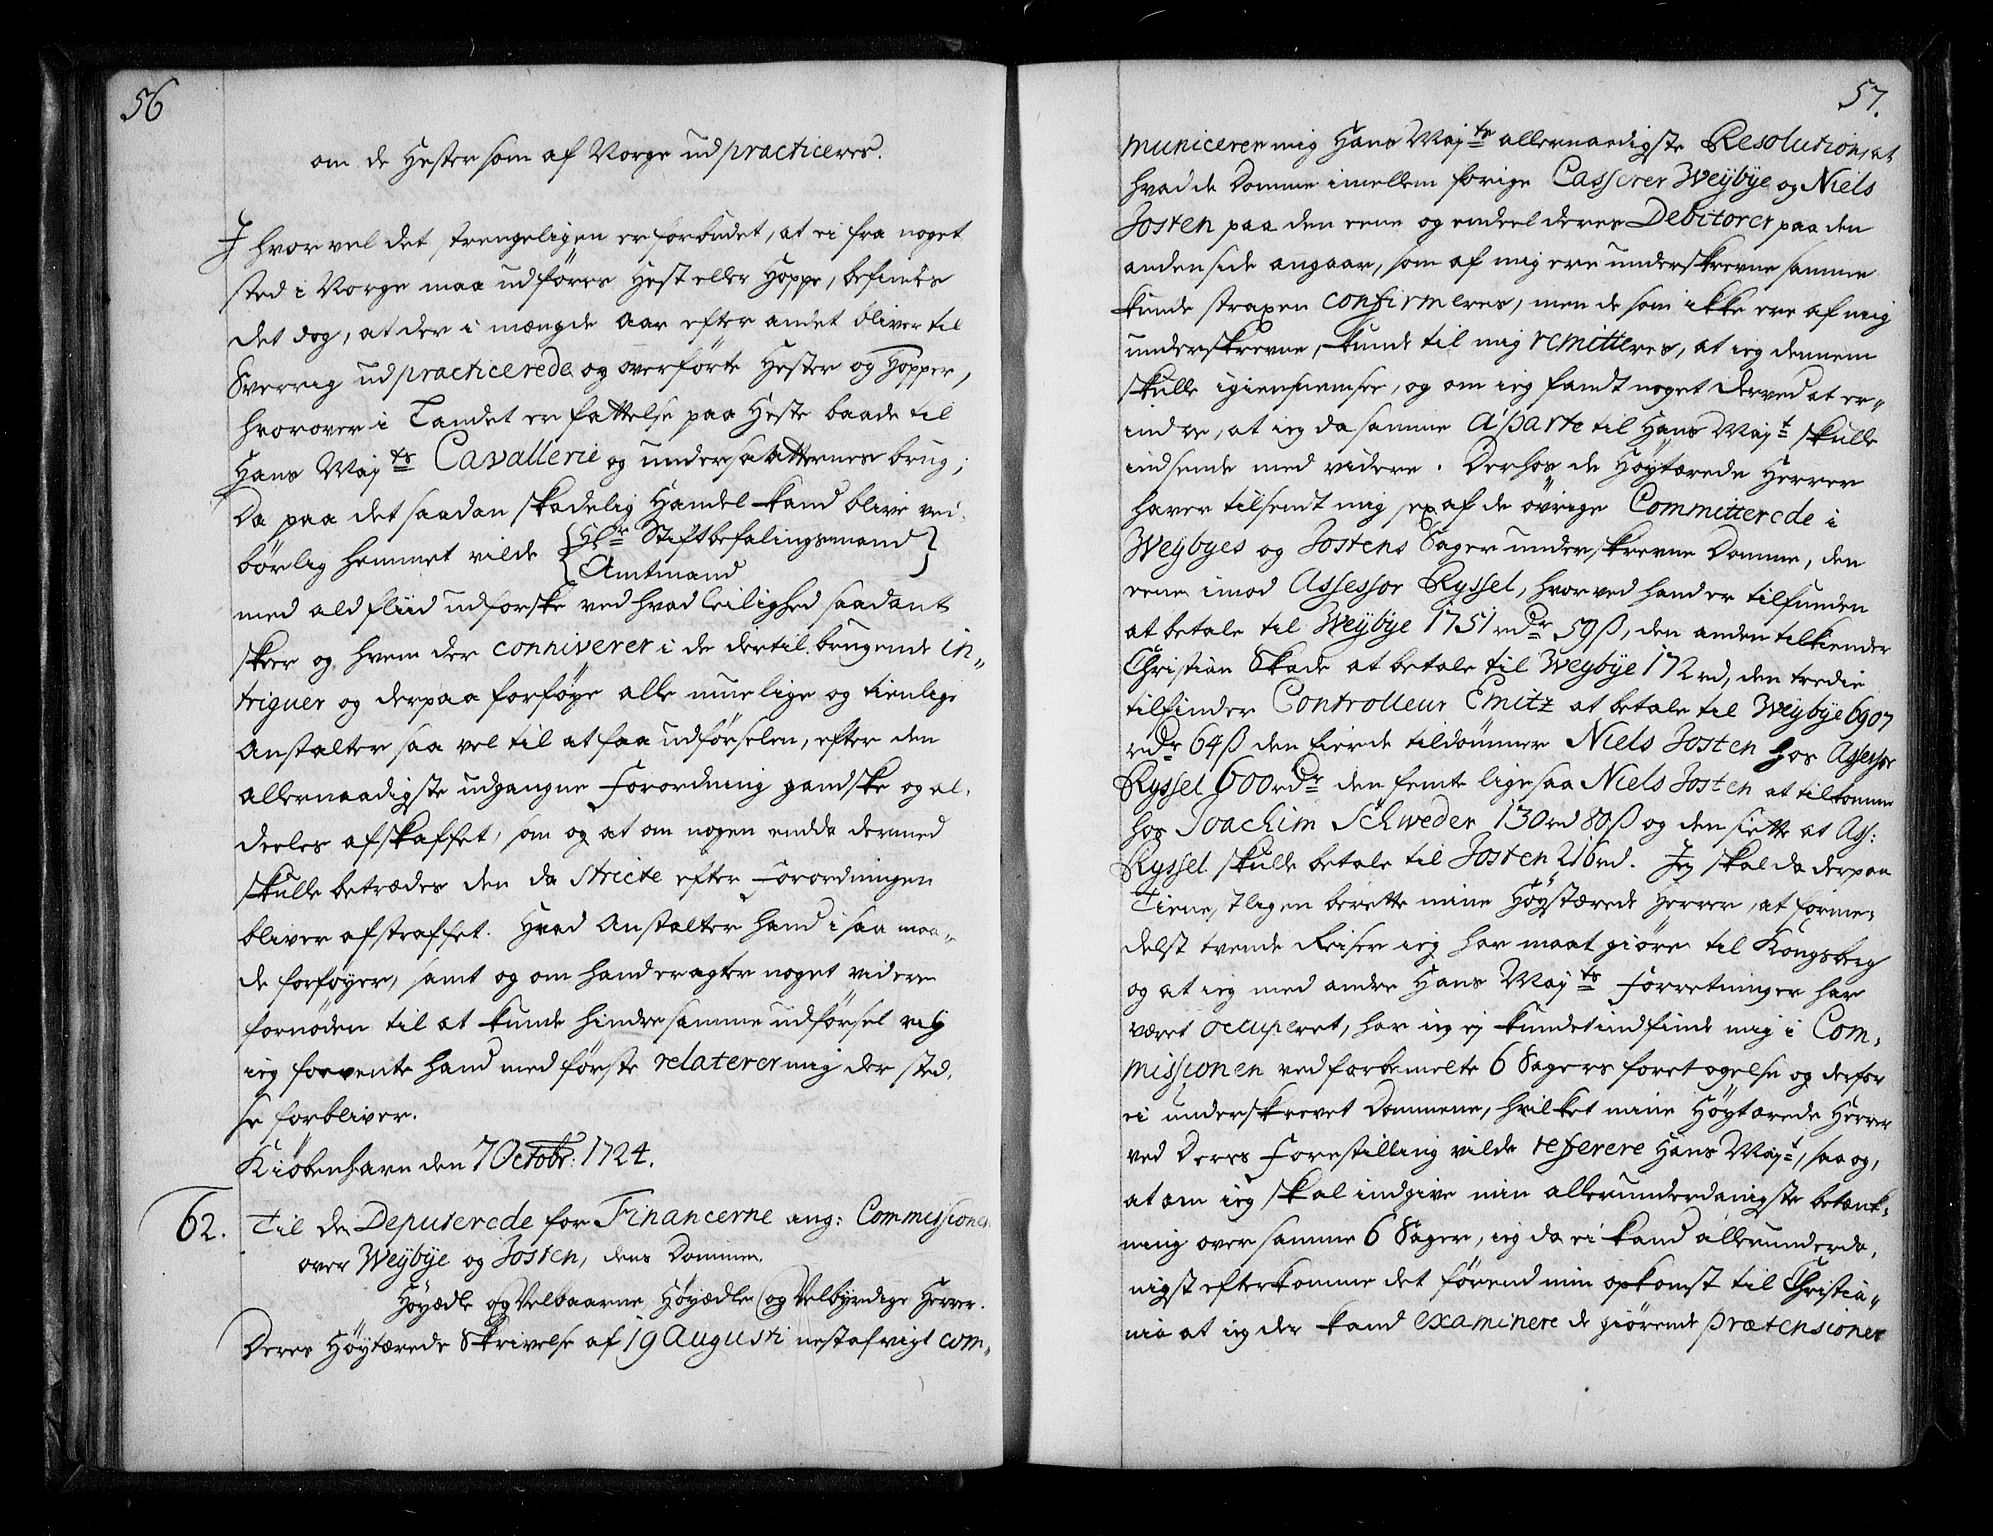 56
om de Hester som af Norge udpracticeres.
I hvorvel det strengeligen er forbudet, at ei fra noget
sted i Norge maa udføres Hest eller Hoppe, befindes
det dog, at der i mængde Aar efter andet bliver til
Sverrig udpracticerede og overførte Hester og Hopper,
hvorover i Landet er fattelse paa Heste baade til
Hans Majts Cavallerie og undersaatternes brug;
Da paa det saadan skadelig Handel kand blive vei-
børlig hemmet vilde {Hr Stiftbefalingsmand}
{Amtmand
med ald fliid udforske ved hvad leilighed saadant
skeer og hvem der conniverer i de dertil brugende in-
triguer og derpaa forføye alle muelige og tienlige
Anstalter saa vel til at faa udførselen, efter den
allernaadigste udgangne Forordning gandske og al-
deeles afskaffet, som og at om nogen endda dermed
skulle betrædes den da stricte efter Forordningen
bliver afstraffet. Hvad Anstalter hand i saa maa-
de forføyer, samt og om hand eragter noget videre
fornøden til at kunde hindre samme udførsel vil
ieg forvente hand med første relaterer mig der sted-
se forbliver.
Kiøbenhavn den 7 Octobr: 1724.
62. Til de Deputerede for Financerne ang: Commissionen
over Weybye og Josten, dens Domme.
Høyædle og Velbaarne, Høyædle og Velbyrdige Herrer.
Deres Høytærede Skrivelse af 19 Augusti nestafvigt com-
57.
municerer mig Hans Majts allernaadigste Resolution, at
hvad de Domme imellem forige Casserer Weybye og Niels
Josten paa den eene og endeel deres Debitorer paa den
anden side angaar, som af mig ere underskrevne samme
kunde straxen confirmeres, men de som ikke ere af mig
underskrevne, kunde til mig remitteres, at ieg dennem
skulle igiennemsee, og om ieg fandt noget derved at er-
indre, at ieg da samme áparte til Hans Majt skulle
indsende med videre. Derhos de Høytærede Herrer
haver tilsendt mig sex af de øvrige Committerede i
Weybyes og Jostens Sager underskrevne Domme, den
eene imod Assessor Ryssel, hvorved hand er tilfunden
at betale til Weybye 1751 rdr 59 ß, den anden tilkiender
Christian Skade at betale til Weybye 172 rd, den tredie
tilfinder Controlleur Emitz at betale til Weybye 6907
rdr 64 ß den fierde tildømmer Niels Josten hos Assessor
Ryssel 600 rdr den femte ligesaa Niels Josten at tilkomme
hos Joachim Schweder 130 rd 80 ß og den siette at Ass:
Ryssel skulle betale til Josten 216 rd. Jeg skal da derpaa
tienstligen berette mine Høystærede Herrer, at forme-
delst tvende Reiser ieg har maat giøre til Kongsberg
og at ieg med andre Hans Majts Forretninger har
været occuperet, har ieg ej kundet indfinde mig i Com-
missionen ved forbemelte 6 Sagers foretagelse og derfor
ei underskrevet Dommene, hvilket mine Høytærede Herrer
ved Deres Forestilling vilde referere Hans Majt, saa og,
at om ieg skal indgive min allerunderdanigste betænk-
ning over samme 6 Sager, ieg da ei kand allerunderda-
nigst efterkomme det førend min opkomst til Christia-
nia at ieg der kand examinere de giørende prætensioner